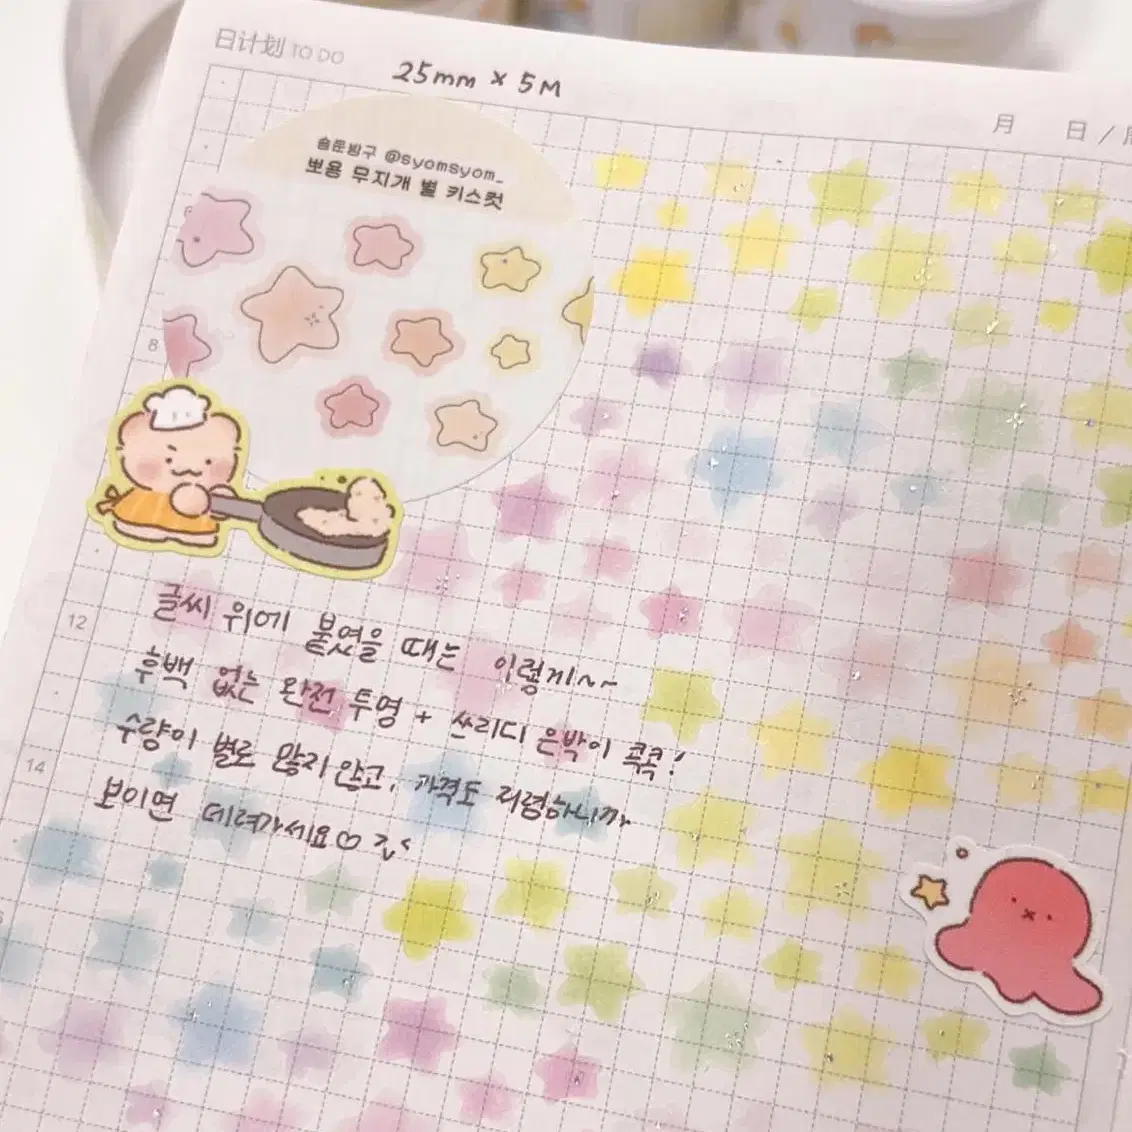 日计划 TO DO
25mm × 5M
月 日 /
숌둔방구 @syomsyom_
뽀용 무지개 별 키스컷
8
글씨 위에 붙였을 때는 이렇게~~
12
후백 없는 완전 투명 + 쓰리디 은박이 콕콕!
수량이 별로 많지 않고, 가격도 저렴하니까
14
보이면 데려가세요♡